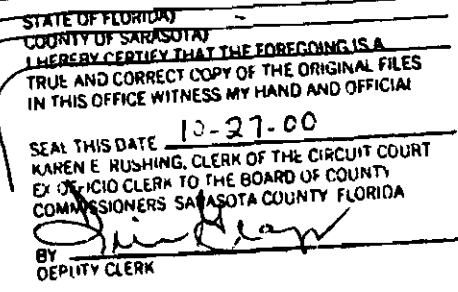 STATE OF FLORIDA)
COUNTY OF SARASOTA)
I HEREBY CERTIFY THAT THE FOREGOING IS A
TRUE AND CORRECT COPY OF THE ORIGINAL FILES
IN THIS OFFICE WITNESS MY HAND AND OFFICIAL
SEAL THIS DATE 10-27-00
KAREN E. RUSHING, CLERK OF THE CIRCUIT COURT
EX OFFICIO CLERK TO THE BOARD OF COUNTY
COMMISSIONERS SARASOTA COUNTY FLORIDA
BY
DEPUTY CLERK